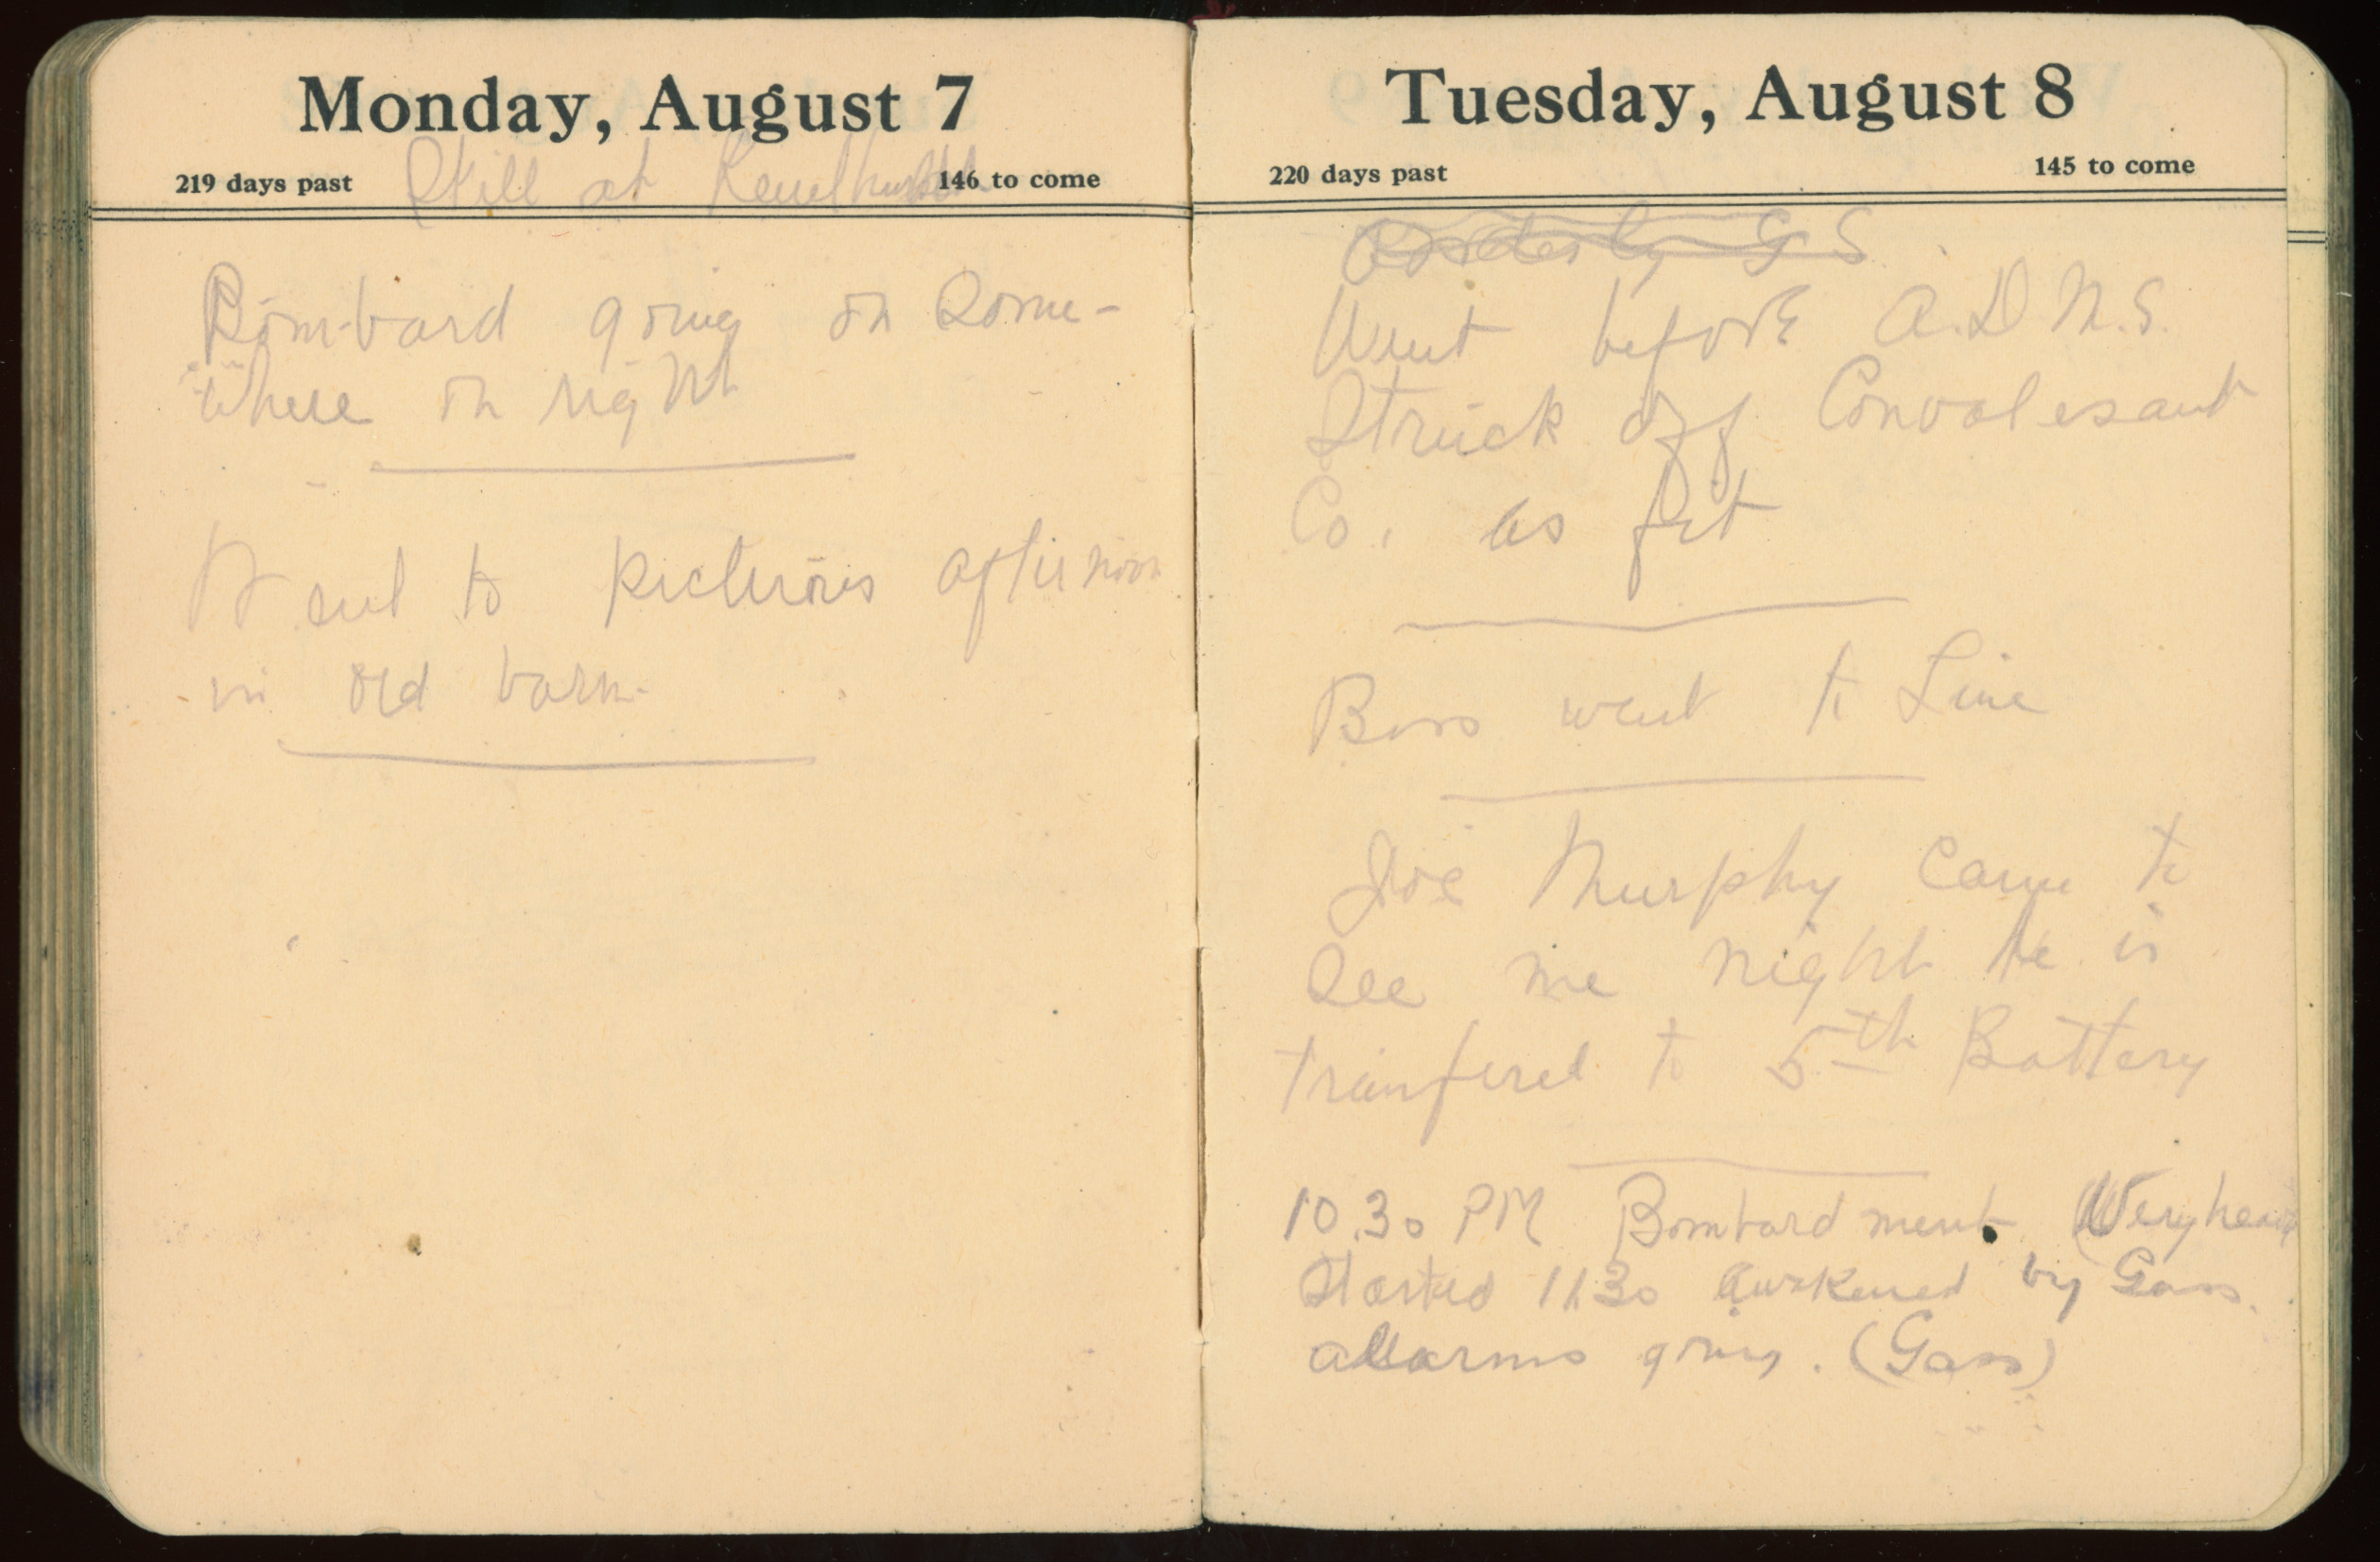 Monday, August 7
219 days past
146 to come
Still at
Bombard going on Some-
where on right
Went to Pictures afternoon
in old barn
Tuesday, August 8
220 days past
145 to come
Went before A.D.M.S.
Struck off Convalesant
Co. as fit
Boss went to Line
Joe Murphy came to
See me night he is
tranfered to 5th Battery
10.30 PM Bombardment (Very heavy
Started 11.30 awakened by Gass
allarms going. (Gass)